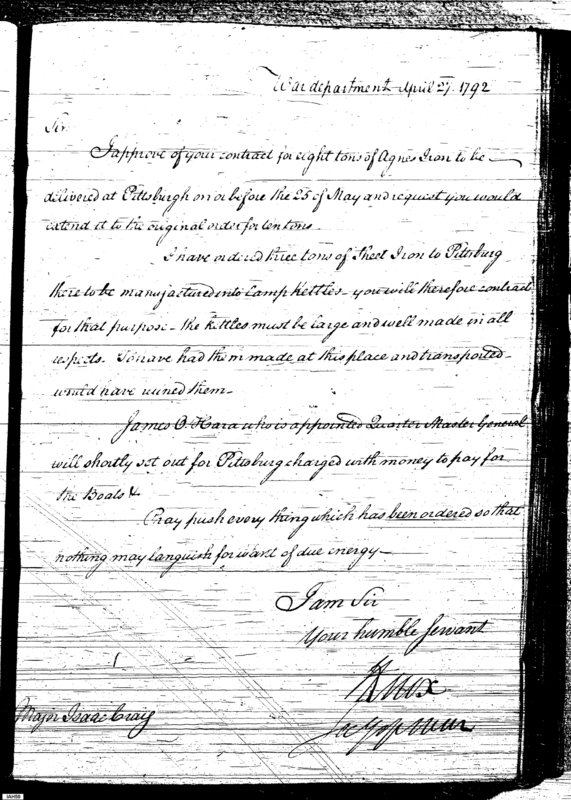 War department April 27. 1792
Sir
I approve of your contract for eight tons of Agnes Iron to be
delivered at Pittsburgh on or before the 25 of May and request you would
extend it to the original order for ten tons
I have ordered three tons of Sheet Iron to Pittsburg
there to be manufactured into Camp Kettles - you will therefore contract
for that purpose - the kettles must be large and well made in all
respects. To have had them made at this place and transported
would have ruined them -
James O. Hara who is appointed Quarter Master General
will shortly set out for Pittsburg charged with money to pay for
the Boats &
Pray push every thing which has been ordered so that
nothing may languish for want of due energy -
I am Sir
Your humble Servant
H Knox
Secy of War
Major Isaac Craig